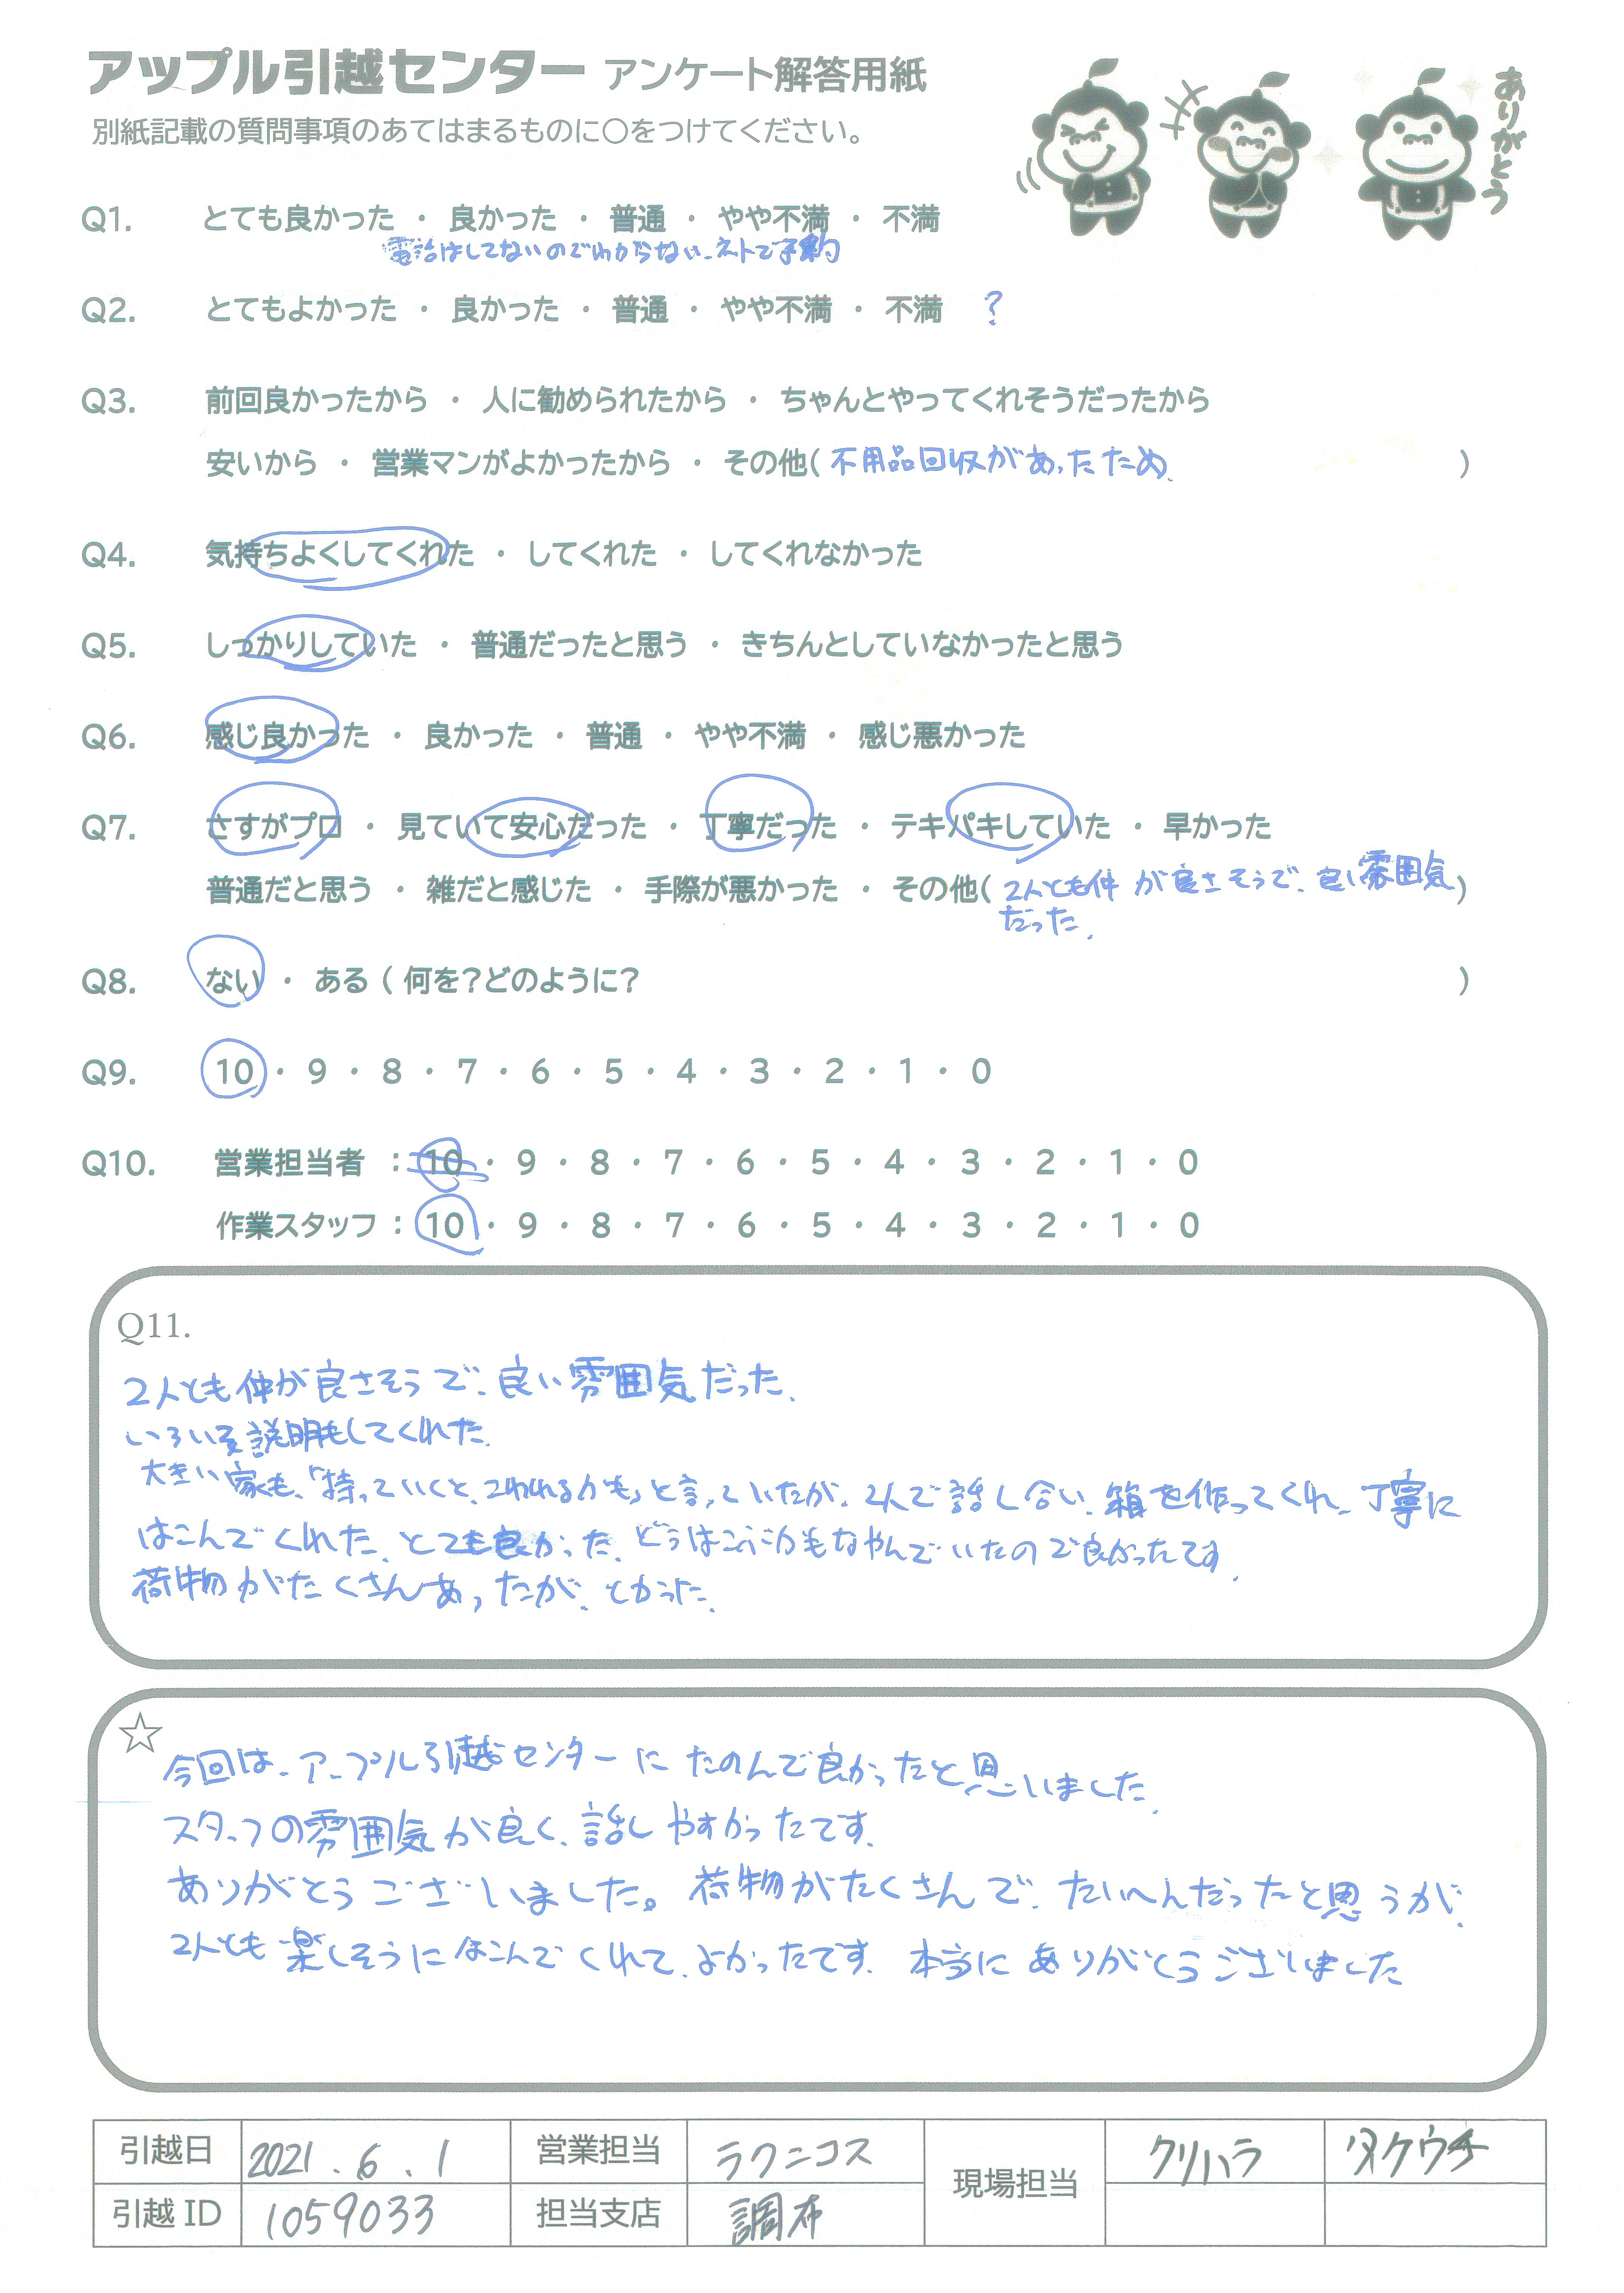 アップル引越センター アンケート解答用紙
別紙記載の質問事項のあてはまるものに○をつけてください。
ありがとう
Q1. とても良かった ・ 良かった ・ 普通 ・ やや不満 ・ 不満
電話はしてないのでわからない、ネトで予約
Q2. とてもよかった ・ 良かった ・ 普通 ・ やや不満 ・ 不満 ?
Q3. 前回良かったから ・ 人に勧められたから ・ ちゃんとやってくれそうだったから
安いから ・ 営業マンがよかったから ・ その他( 不用品回収があったため、 )
Q4. 気持ちよくしてくれた ・ してくれた ・ してくれなかった
Q5. しっかりしていた ・ 普通だったと思う ・ きちんとしていなかったと思う
Q6. 感じ良かった ・ 良かった ・ 普通 ・ やや不満 ・ 感じ悪かった
Q7. さすがプロ ・ 見ていて安心だった ・ 丁寧だった ・ テキパキしていた ・ 早かった
普通だと思う ・ 雑だと感じた ・ 手際が悪かった ・ その他( 2人とも仲が良さそうで、良い雰囲気 )
だった、
Q8. ない ・ ある ( 何を?どのように? )
Q9. 10 ・ 9 ・ 8 ・ 7 ・ 6 ・ 5 ・ 4 ・ 3 ・ 2 ・ 1 ・ 0
Q10. 営業担当者 : 10 ・ 9 ・ 8 ・ 7 ・ 6 ・ 5 ・ 4 ・ 3 ・ 2 ・ 1 ・ 0
作業スタッフ : 10 ・ 9 ・ 8 ・ 7 ・ 6 ・ 5 ・ 4 ・ 3 ・ 2 ・ 1 ・ 0
Q11.
2人とも仲が良さそうで、良い雰囲気だった、
いろいろ説明もしてくれた、
大きい家も、「持っていくと、こわれるかも」と言っていたが、2人で話し合い、箱を作ってくれ、丁寧に
はこんでくれた、とても良かった、どうはこぶかもなやんでいたので良かったです、
荷物がたくさんあったが、よかった、
☆
今回は、アップル引越センターにたのんで良かったと思いました、
スタッフの雰囲気が良く、話しやすかったです、
ありがとうございました。荷物がたくさんで、たいへんだったと思うが、
2人とも楽しそうにはこんでくれて、よかったです、本当にありがとうございました
引越日 2021.6.1 営業担当 ラクニコス 現場担当 クリハラ タケウチ
引越ID 1059033 担当支店 調布